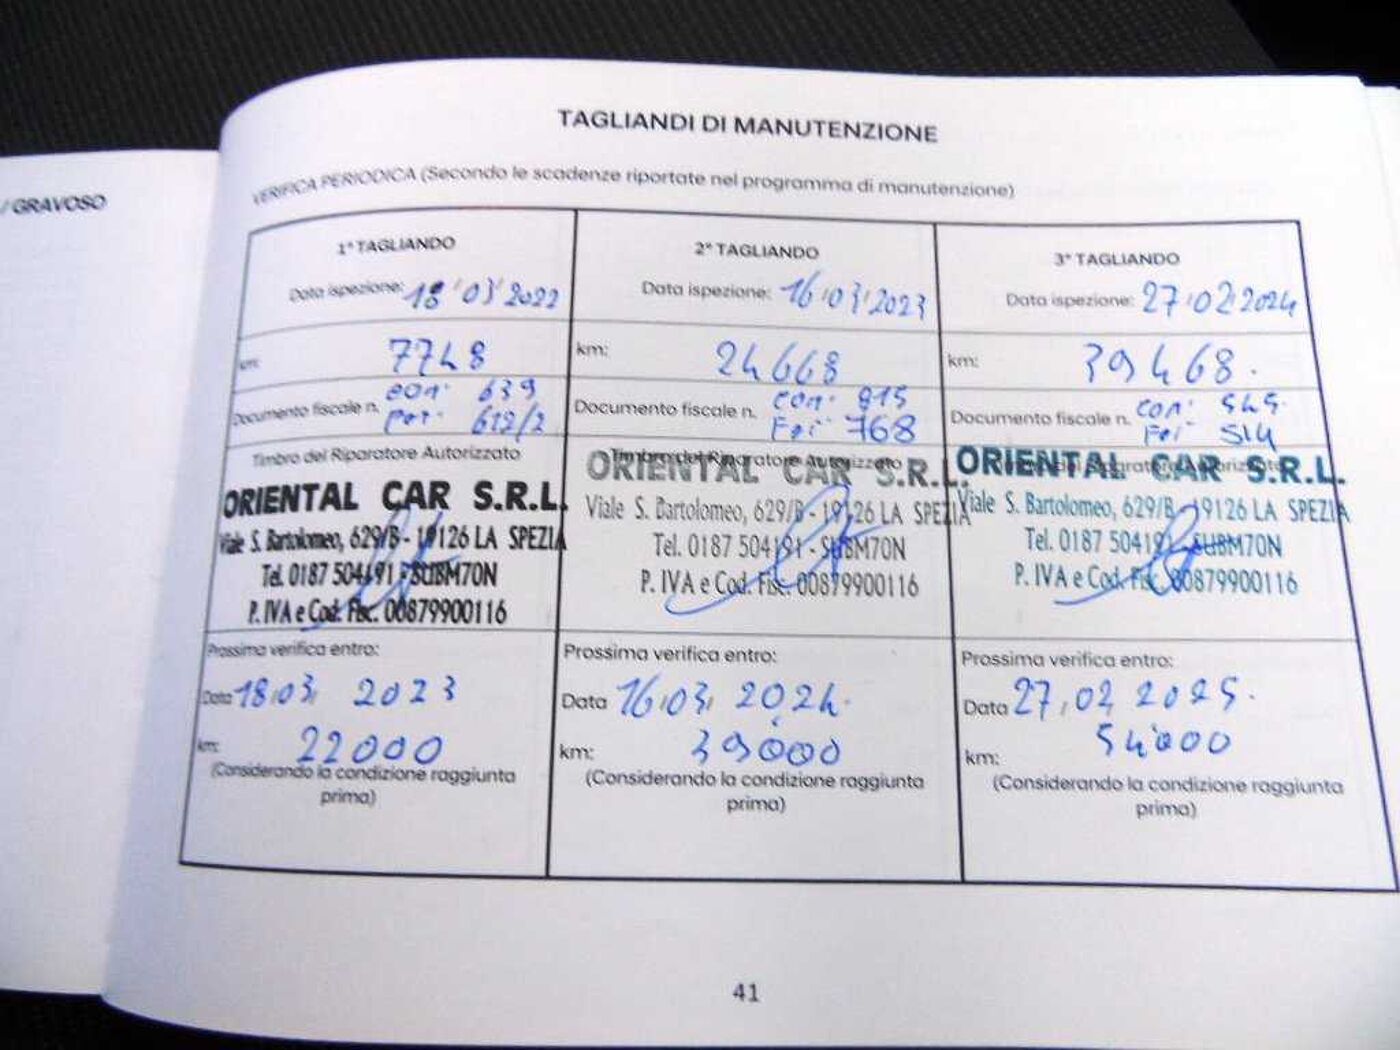 / GRAVOSO
TAGLIANDI DI MANUTENZIONE
VERIFICA PERIODICA (Secondo le scadenze riportate nel programma di manutenzione)
1° TAGLIANDO
Data ispezione: 18/03/2022
km: 7748
Documento fiscale n. con. 639
612/2
Timbro del Riparatore Autorizzato
ORIENTAL CAR S.R.L.
Viale S. Bartolomeo, 629/B - 19126 LA SPEZIA
Tel. 0187 504191 - SUBM70N
P. IVA e Cod. Fisc. 00879900116
Prossima verifica entro:
Data 18/03/ 2023
km: 22000
(Considerando la condizione raggiunta
prima)
2° TAGLIANDO
Data ispezione: 16/03/2023
km: 24668
Documento fiscale n. con. 815
768
Timbro del Riparatore Autorizzato
ORIENTAL CAR S.R.L.
Viale S. Bartolomeo, 629/B - 19126 LA SPEZIA
Tel. 0187 504191 - SUBM70N
P. IVA e Cod. Fisc. 00879900116
Prossima verifica entro:
Data 16/03/ 2024.
km: 39000
(Considerando la condizione raggiunta
prima)
3° TAGLIANDO
Data ispezione: 27/02/2024
km: 39468.
Documento fiscale n. con. 545.
514
Timbro del Riparatore Autorizzato
ORIENTAL CAR S.R.L.
Viale S. Bartolomeo, 629/B - 19126 LA SPEZIA
Tel. 0187 504191 - SUBM70N
P. IVA e Cod. Fisc. 00879900116
Prossima verifica entro:
Data 27/02 2025.
km: 54'000
(Considerando la condizione raggiunta
prima)
41